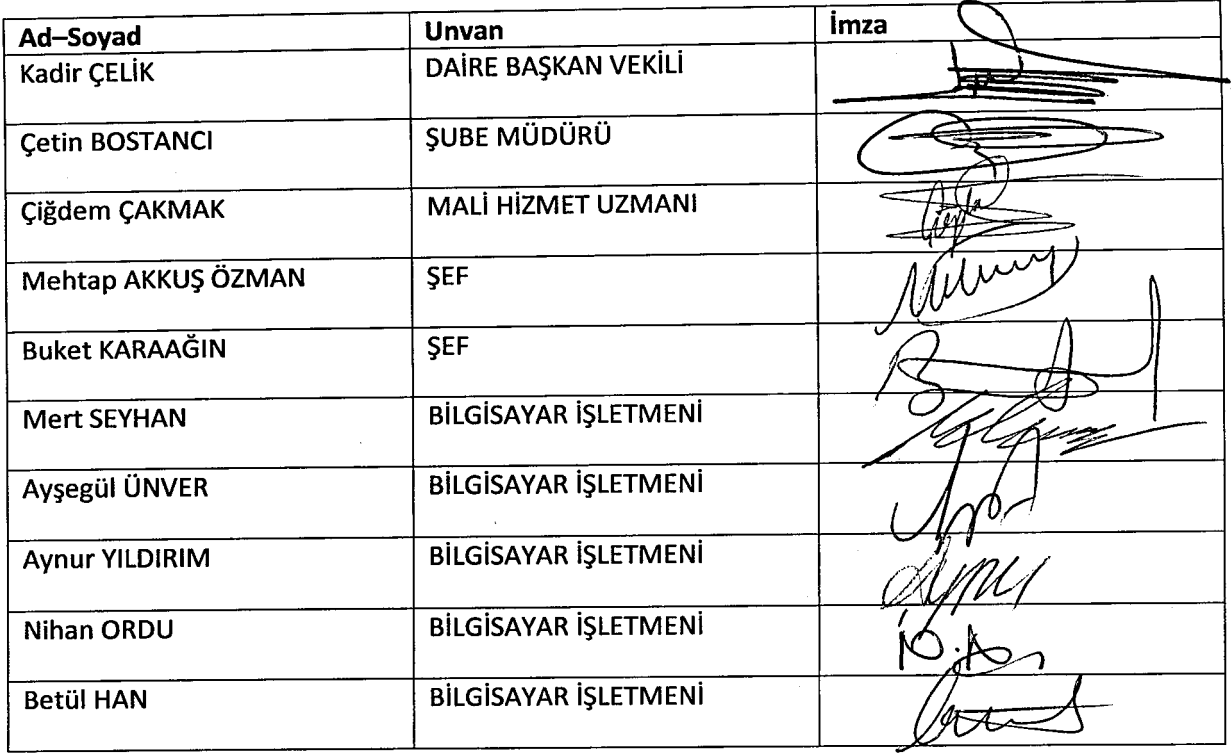 Ad–Soyad Unvan İmza
Kadir ÇELİK DAİRE BAŞKAN VEKİLİ
Çetin BOSTANCI ŞUBE MÜDÜRÜ
Çiğdem ÇAKMAK MALİ HİZMET UZMANI
Mehtap AKKUŞ ÖZMAN ŞEF
Buket KARAAĞIN ŞEF
Mert SEYHAN BİLGİSAYAR İŞLETMENİ
Ayşegül ÜNVER BİLGİSAYAR İŞLETMENİ
Aynur YILDIRIM BİLGİSAYAR İŞLETMENİ
Nihan ORDU BİLGİSAYAR İŞLETMENİ
Betül HAN BİLGİSAYAR İŞLETMENİ